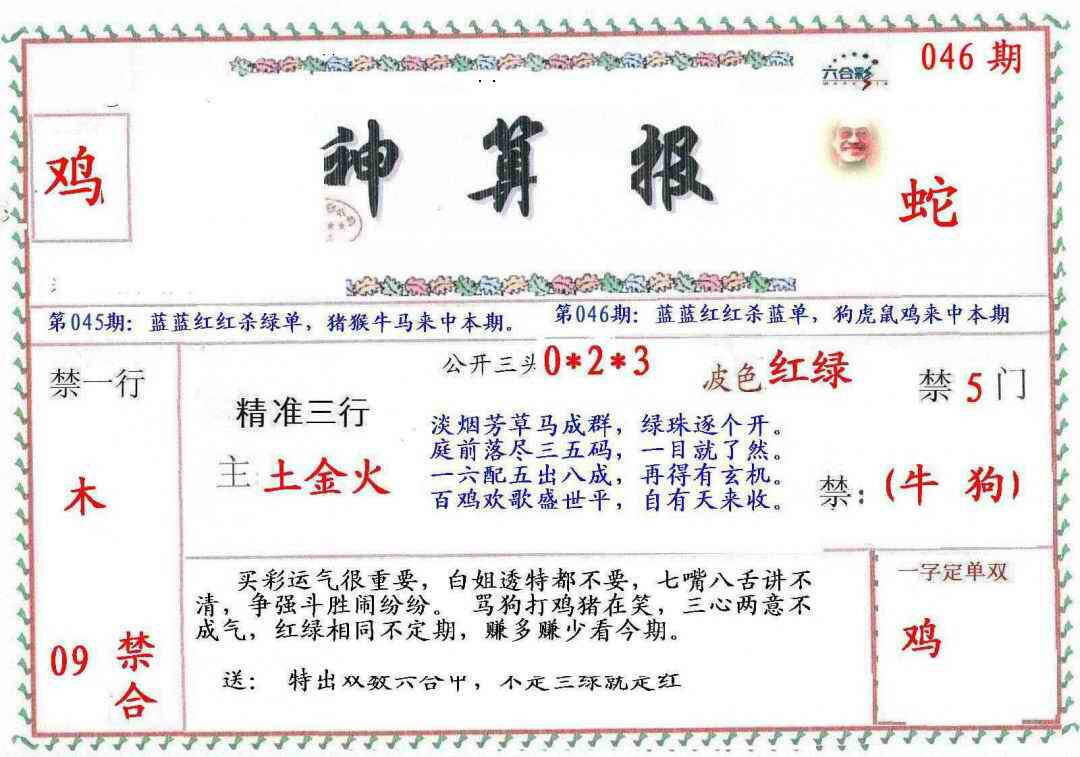 046 期
六合彩
鸡
神算报
蛇
第045期：蓝蓝红红杀绿单，猪猴牛马来中本期。
第046期：蓝蓝红红杀蓝单，狗虎鼠鸡来中本期
禁一行
木
09 禁合
公开三头 0*2*3
波色 红绿
禁 5 门
精准三行
主 土金火
淡烟芳草马成群，绿珠逐个开。
庭前落尽三五码，一目就了然。
一六配五出八成，再得有玄机。
百鸡欢歌盛世平，自有天来收。
禁：(牛 狗)
买彩运气很重要，白姐透特都不要，七嘴八舌讲不
清，争强斗胜闹纷纷。 骂狗打鸡猪在笑，三心两意不
成气，红绿相同不定期，赚多赚少看今期。
送： 特出双数六合中，不是三绿就是红
一字定单双
鸡